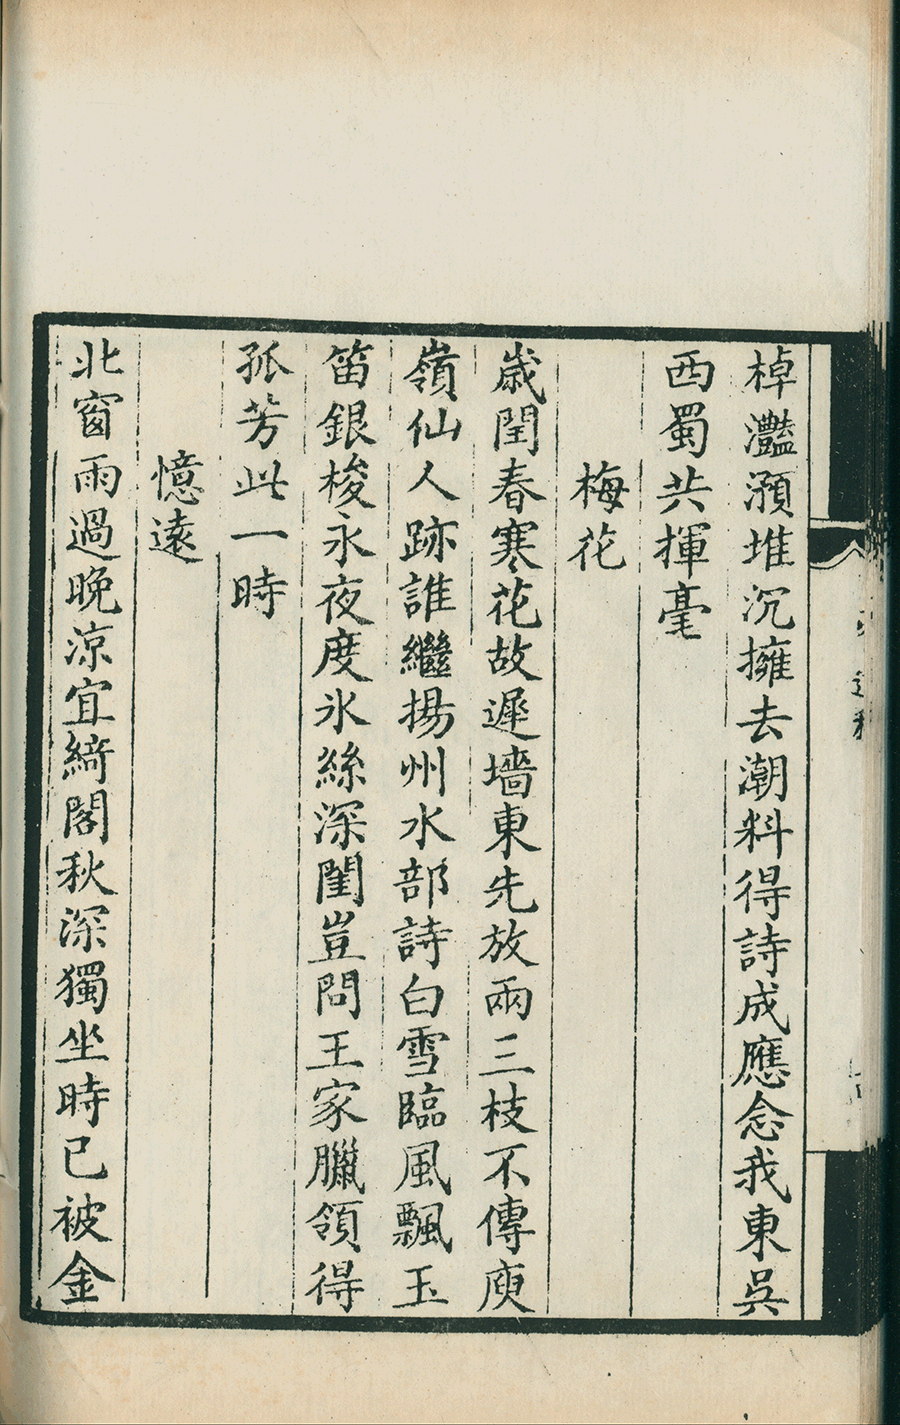 棹灩澦堆沉擁去潮料得詩成應念我東吳
西蜀共揮毫
梅花
歲閏春寒花故遲墻東先放兩三枝不傳庾
嶺仙人跡誰繼揚州水部詩白雪臨風飄玉
笛銀梭永夜度氷絲深閨豈問王家臘領得
孤芳此一時
憶遠
北窗雨過晚凉宜綺閣秋深獨坐時已被金